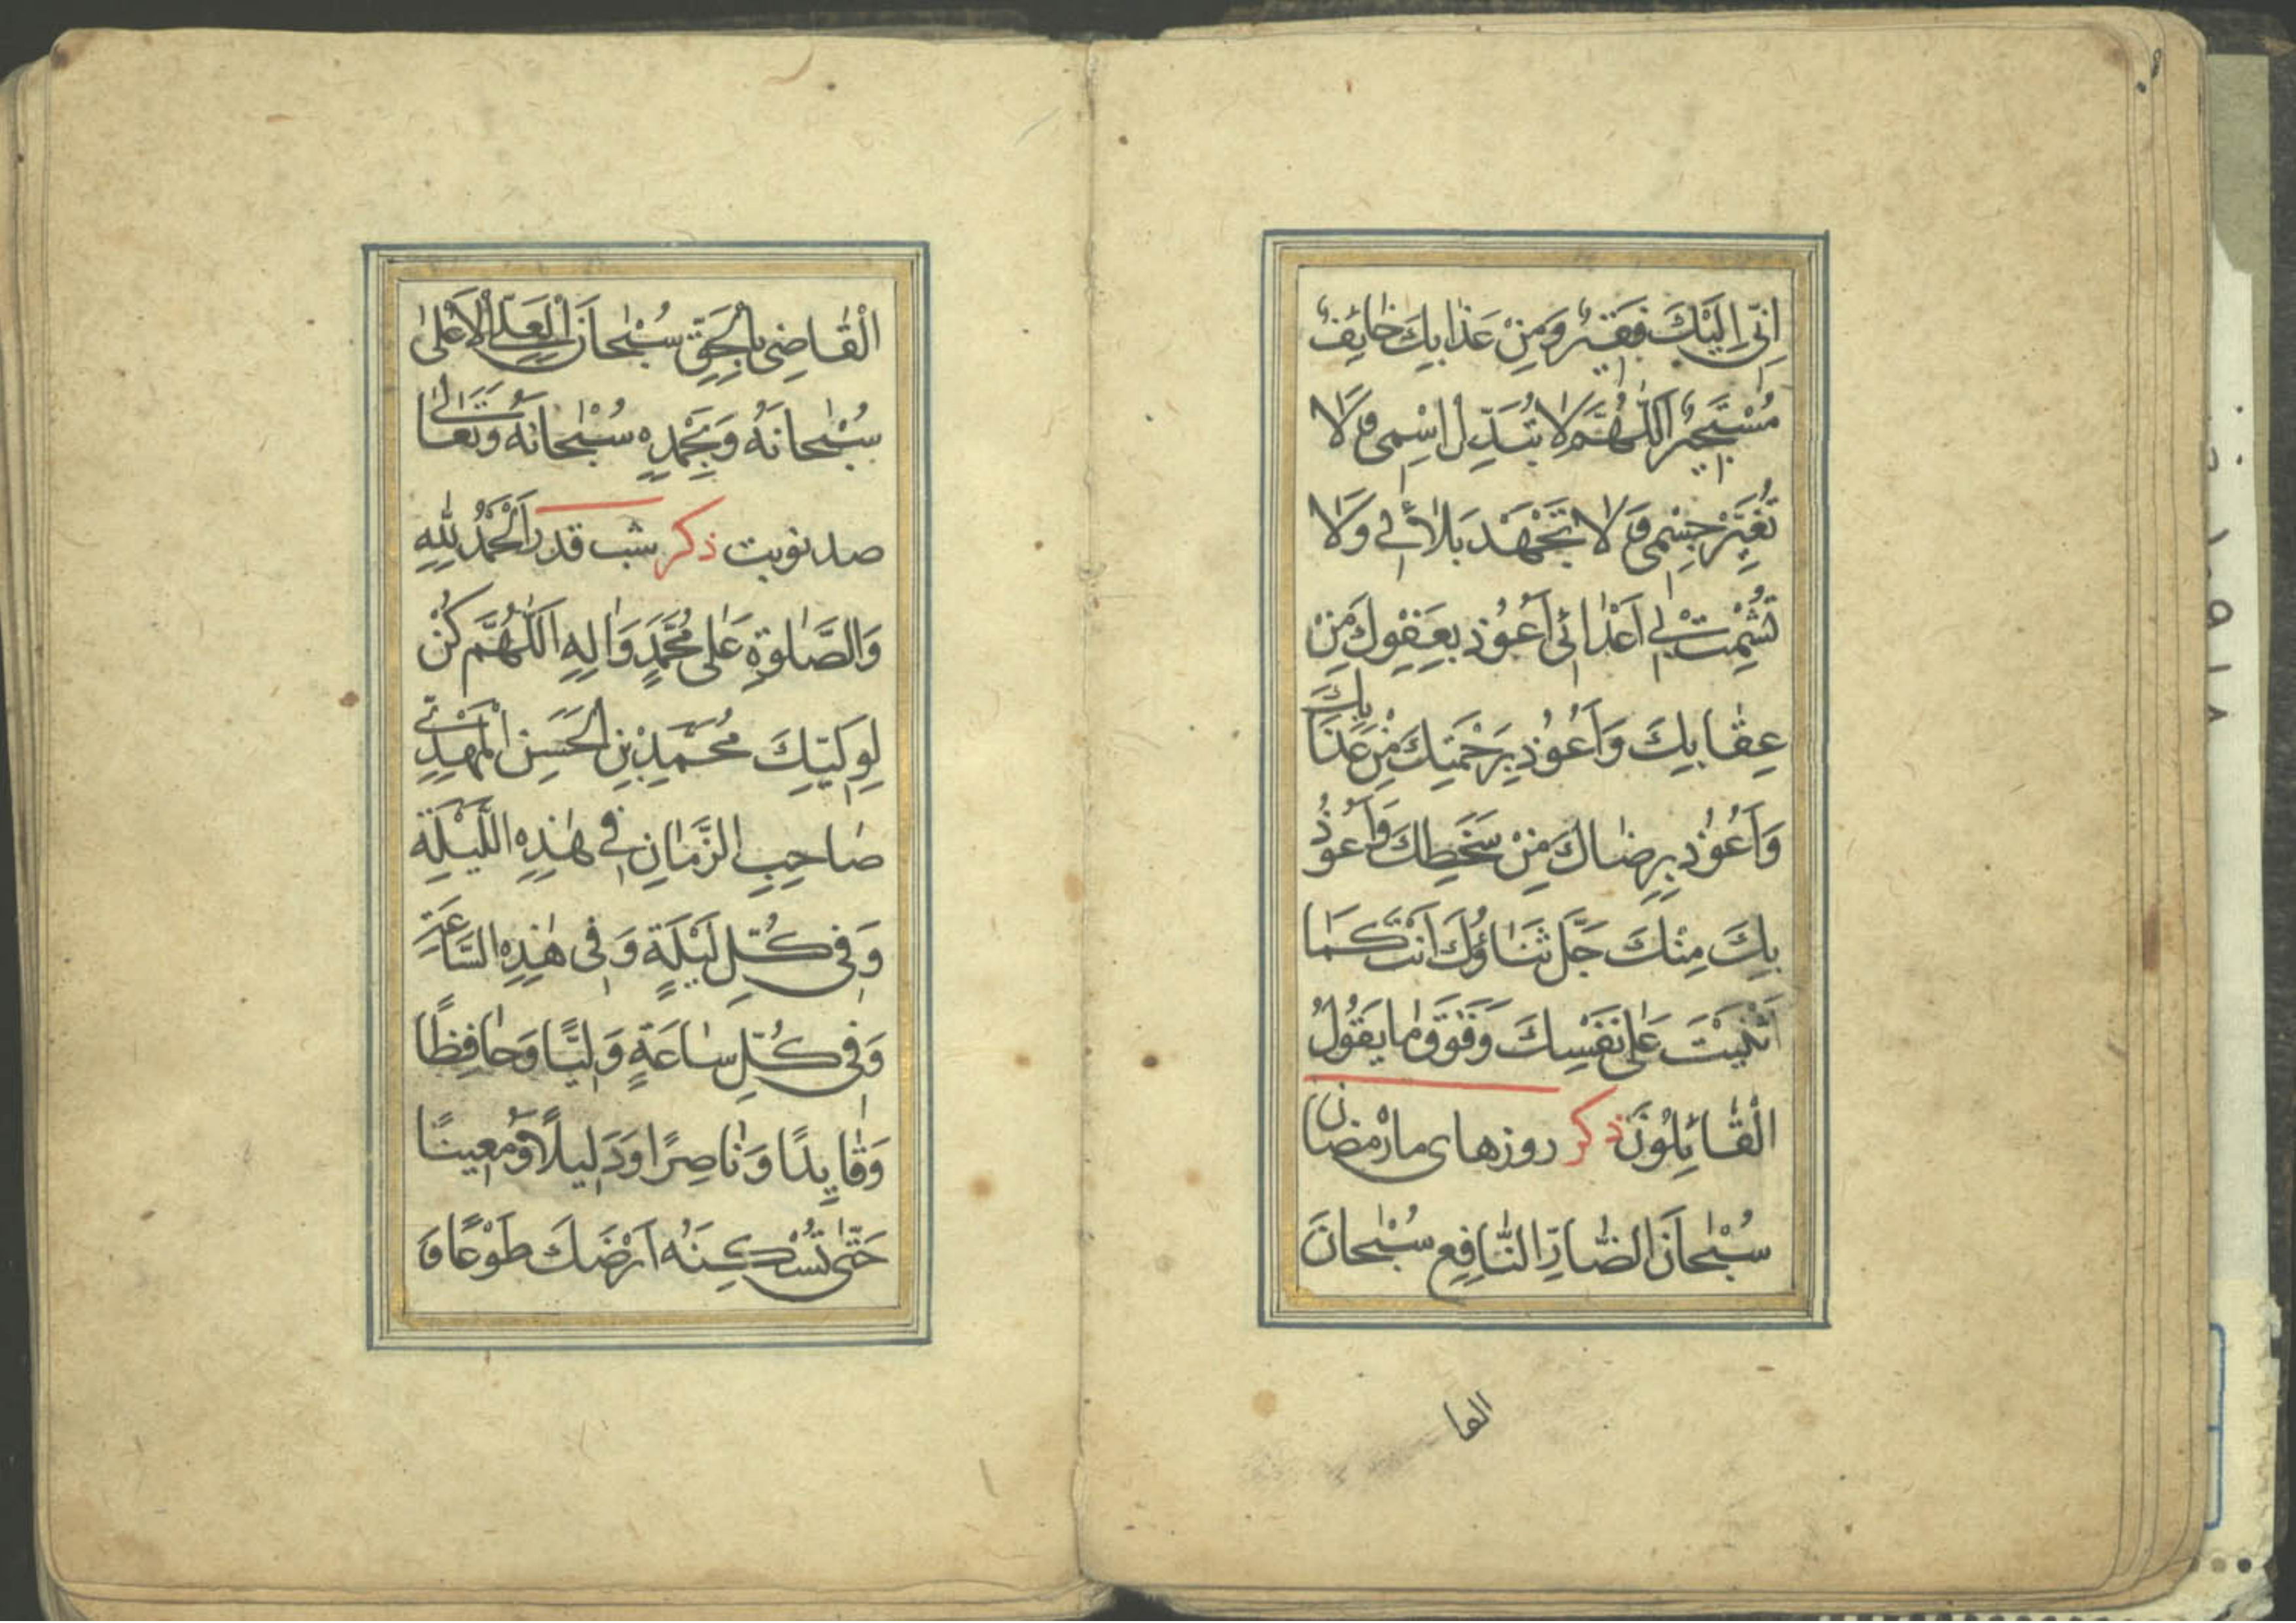 اِنّی اِلَیْكَ فَقیٖرٌ وَمِنْ عَذٰابِكَ خٰائِفٌ
مُسْتَجیٖرٌ اَللّٰهُمَّ لٰا تُبَدِّل اسْمِی وَ لٰا
تُغَیِّرْ جِسْمِی وَ لٰا تَجْهَدْ بَلٰائی وَلٰا
تُشْمِتْ بی اَعْدٰائی اَعُوُذ بِعَفْوِكَ مِنْ
عِقٰابِكَ وَاَعُوُذ بِرَحْمَتِكَ مِنْ عَذٰابِكَ
وَاَعُوُذ بِرِضٰاكَ مِنْ سَخَطِكَ وَاَعُوذُ
بِكَ مِنْكَ جَلَّ ثَنٰاؤُكَ اَنْتَ كَمٰا
اَثْنَیْتَ عَلیٰ نَفْسِكَ وَفَوْقَ مٰا یَقُولُ
الْقٰائِلُونَ ذكر روزهای ماه رمضان
سُبْحٰانَ الضّٰارِّ النّٰافِعِ سُبْحٰانَ
الفا
الْقٰاضِی بِالْحَقِّ سُبْحٰانَ الْعَلِیِّ الْاَعْلیٰ
سُبْحٰانَهُ وَبِحَمْدِهِ سُبْحٰانَهُ وَتَعٰالیٰ
صد نوبت ذكر شب قدر اَلْحَمْدُ لِلّٰهِ
وَالصَّلٰوةِ عَلیٰ مُحَمَّدٍ وَاٰلِهِ اَللّٰهُمَّ كُنْ
لِوَلِیِّكَ مُحَمَّدِ بْنِ الْحَسَنِ الْمَهْدِیِّ
صٰاحِبِ الزَّمٰانِ فِی هٰذِهِ اللَّیْلَةِ
وَفِی كُلِّ لَیْلَةٍ وَفِی هٰذِهِ السّٰاعَةِ
وَفِی كُلِّ سٰاعَةٍ وَلِیًّا وَحٰافِظًا
وَقٰایِدًا وَنٰاصِرًا وَدَلیلًا وَمُعینًا
حَتّیٰ تُسْكِنَهُ اَرْضَكَ طَوْعًا وَ